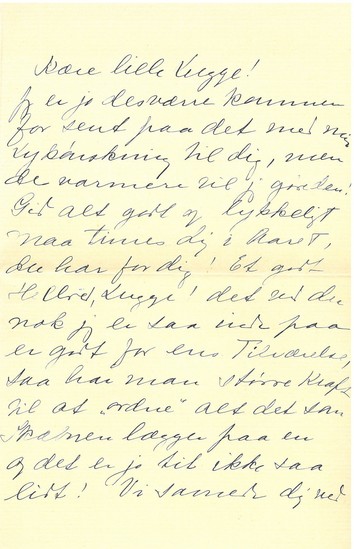 Kære lille Lugge!
jeg er jo desværre kommen
for sent paa det med min
Lykønskning til dig, men
de varmere vil jeg
Gid alt godt og lykkeligt
maa times dig i Aaret,
du har for dig! Et godt
Helbred, Lugge! det ved du
nok jeg er saa inde paa
er godt for ens Tilværelse,
saa har man større Kraft
til at "ordne" alt det som
Skæbnen lægger paa en
og det er jo tit ikke saa
lidt! Vi savnede dig ved